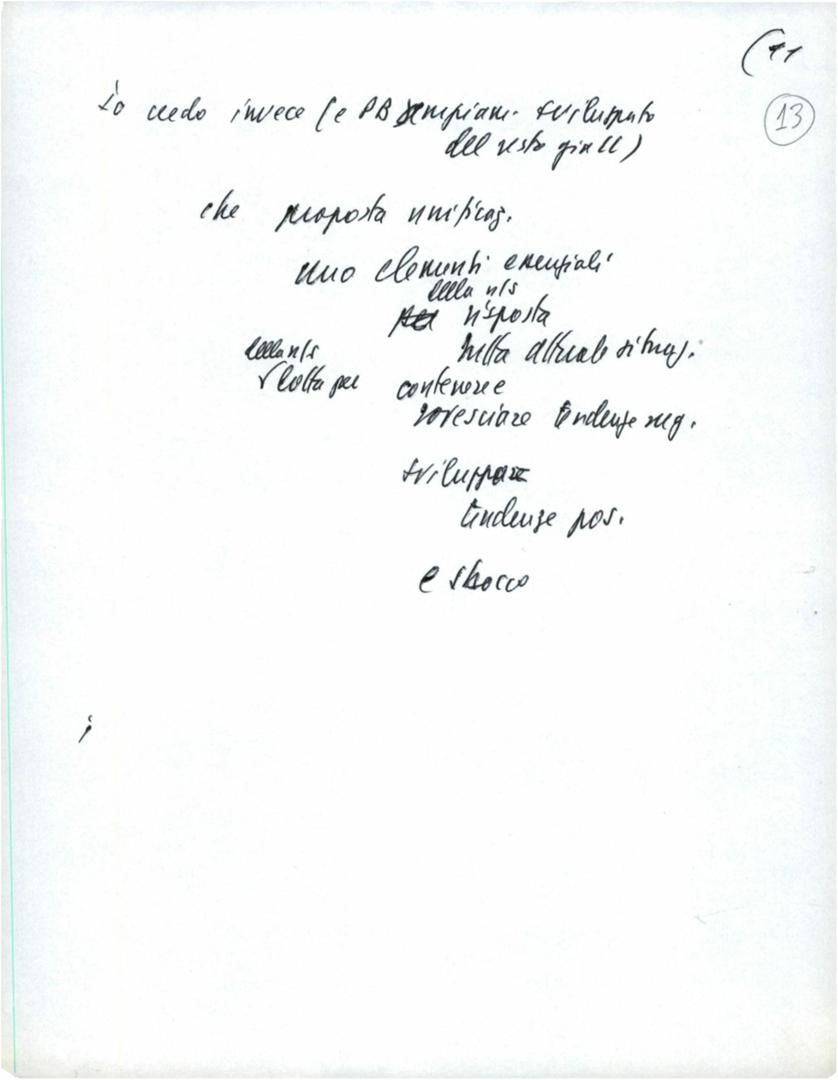 (11
13
Io credo invece (e PB ampiam. sviluppato
del resto già ll)
che proposta unificaz.
uno elementi essenziali
della n/s
risposta
nella attuale situaz.
della n/s
lotta per contenere e
rovesciare tendenze neg.
sviluppare
tendenze pos.
e sbocco